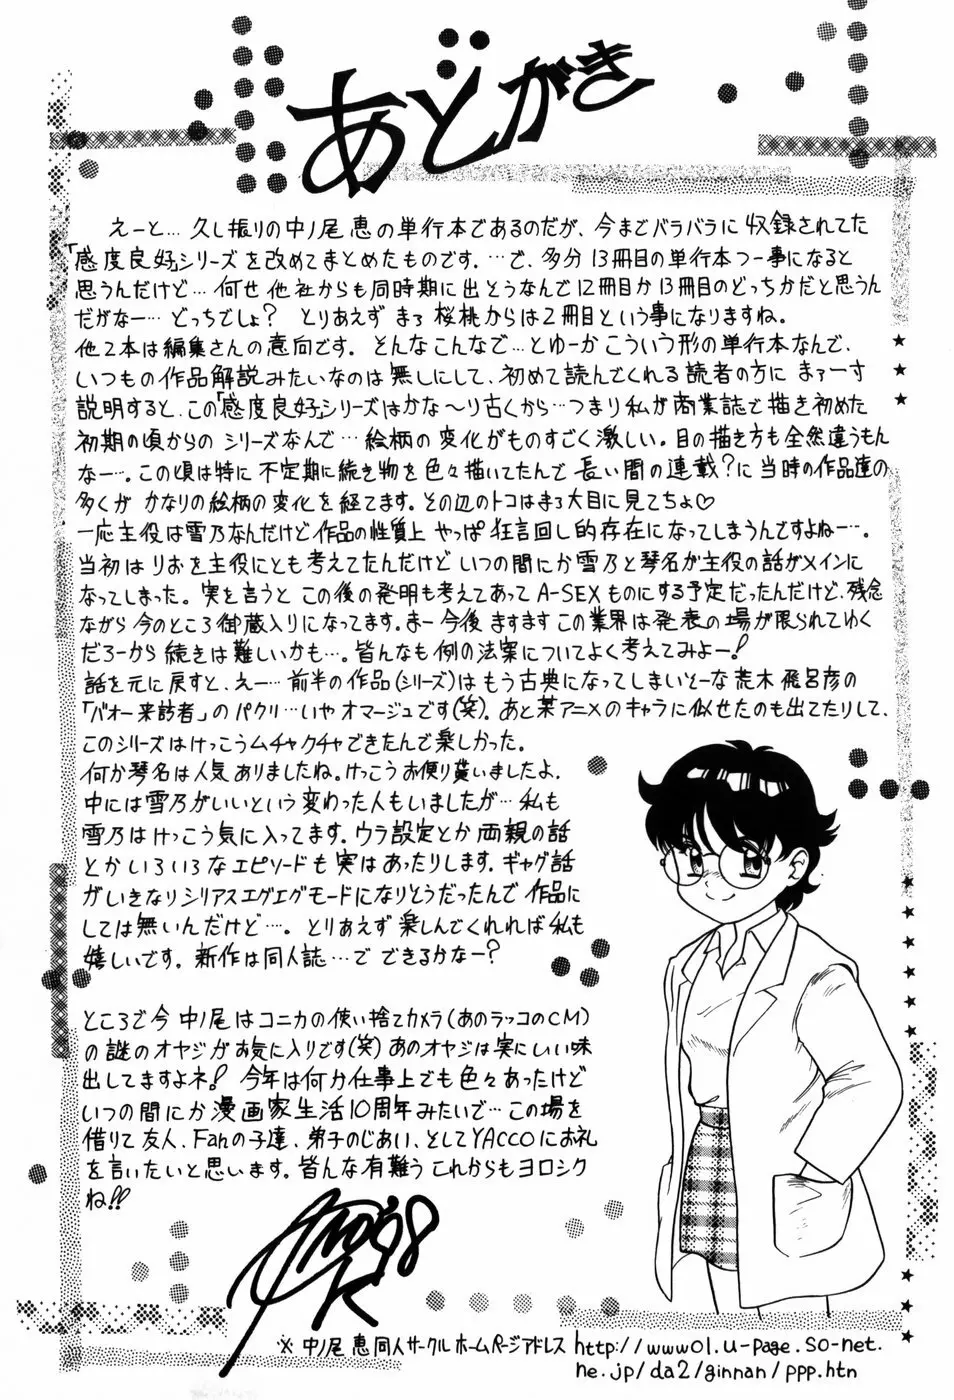 あとがき
えーと… 久し振りの中ノ尾 恵の単行本であるのだが、今までバラバラに収録されてた
「感度良好」シリーズを改めてまとめたものです。…で、多分13冊目の単行本つー事になると
思うんだけど… 何せ他社からも同時期に出そうなんで12冊目か13冊目のどっちかだと思うん
だがなー… どっちでしょ? とりあえずまぁ桜桃からは2冊目という事になりますね。
他2本は編集さんの意向です。 そんなこんなで…とゆーかこういう形の単行本なんで、
いつもの作品解説みたいなのは無しにして、初めて読んでくれる読者の方にまぁーす
説明すると、この「感度良好」シリーズはかな〜り古くから…つまり私が商業誌で描き初めた
初期の頃からのシリーズなんで… 絵柄の変化がものすごく激しい。目の描き方も全然違うもん
なー…。この頃は特に不定期に続き物を色々描いてたんで長い間の連載?に当時の作品達の
多くがかなりの絵柄の変化を経てます。その辺のトコはまぁ大目に見てちょ♡
一応主役は雪乃なんだけど作品の性質上 やっぱ狂言回し的存在になってしまうんですよねー…。
当初はりおを主役にとも考えてたんだけどいつの間にか雪乃と琴名が主役の話がメインに
なってしまった。実を言うとこの後の発明も考えてあってA-SEXものにする予定だったんだけど、残念
ながら今のところ御蔵入りになってます。まー今後ますますこの業界は発表の場が限られてゆく
だろーから続きは難しいかも…。皆んなも例の法案についてよく考えてみよー!
話を元に戻すと、えー…前半の作品(シリーズ)はもう古典になってしまいそーな荒木飛呂彦の
「バオー来訪者」のパクリ…いやオマージュです(笑)。あと某アニメのキャラに似せたのも出てたりして、
このシリーズはけっこうムチャクチャできたんで楽しかった。
何か琴名は人気ありましたね。けっこうお便り貰いましたよ。
中には雪乃がいいという変わった人もいましたが…私も
雪乃はけっこう気に入ってます。ウラ設定とか両親の話
とかいろいろなエピソードも実はあったりします。ギャグ話
がいきなりシリアスエグエグモードになりそうだったんで作品に
しては無いんだけど…。とりあえず楽しんでくれれば私も
嬉しいです。新作は同人誌…でできるかなー?
ところで今 中ノ尾はコニカの使い捨てカメラ(あのラッコのCM)
の謎のオヤジがお気に入りです(笑)あのオヤジは実にいい味
出してますよネ! 今年は何か仕事上でも色々あったけど
いつの間にか漫画家生活10周年みたいで…この場を
借りて友人、Fanの子達、弟子のじあい、そしてYACCOにお礼
を言いたいと思います。皆んな有難う これからもヨロシク
ね!!
'98
※ 中ノ尾 恵同人サークルホームページアドレス http://www01.u-page.so-net.
ne.jp/da2/ginnan/ppp.htn